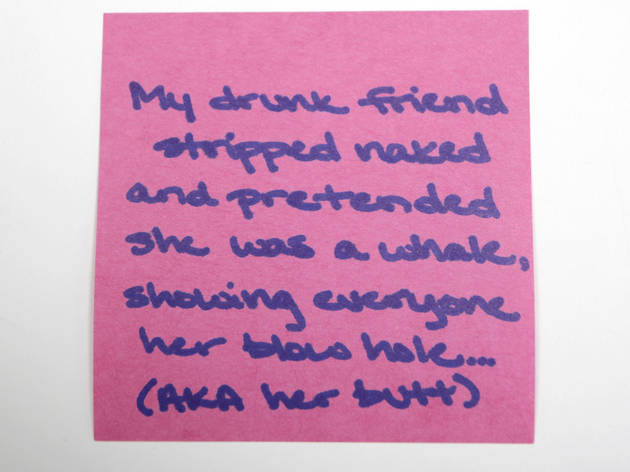 My drunk friend
stripped naked
and pretended
she was a whale,
showing everyone
her blow hole...
(AKA her butt)